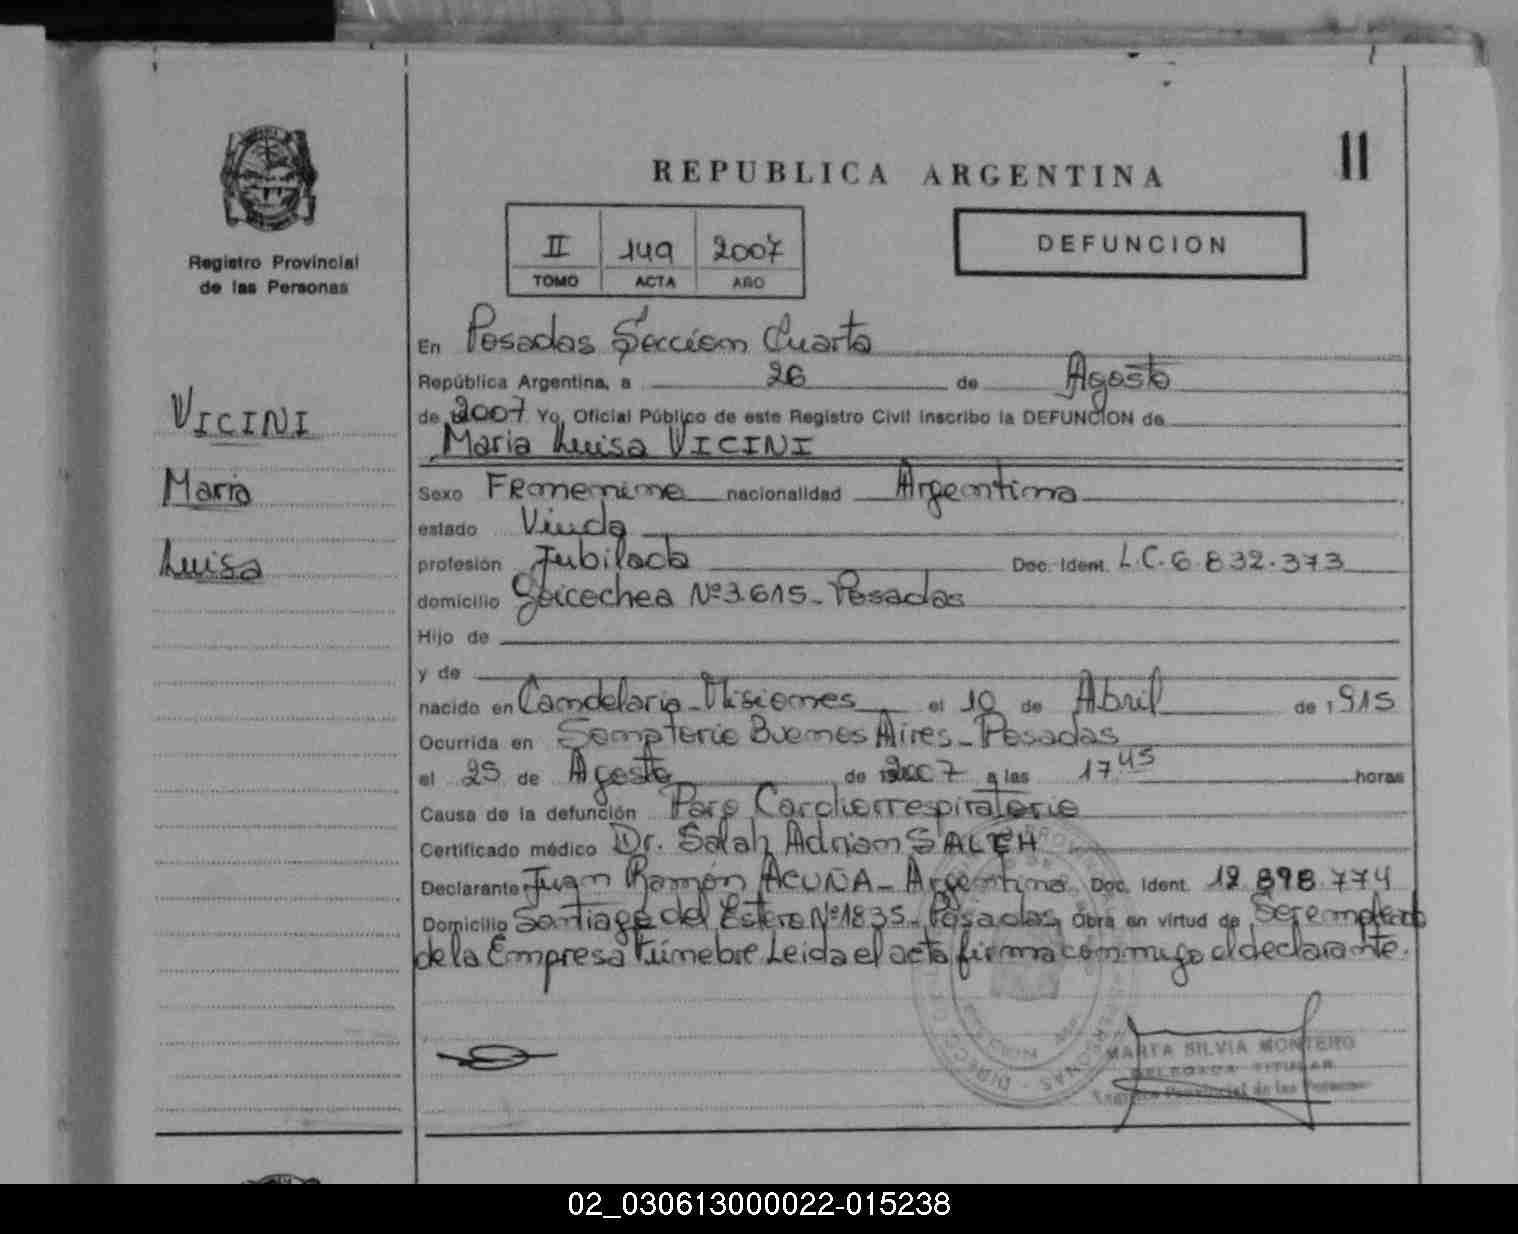 REPUBLICA ARGENTINA
II
Registro Provincial
de las Personas
II 149 2007
TOMO ACTA AÑO
DEFUNCION
VICINI
Maria
Luisa
En Posadas Sección Cuarta
República Argentina, a 26 de Agosto
de 2007 Yo, Oficial Público de este Registro Civil inscribo la DEFUNCION de
Maria Luisa VICINI
Sexo Femenino nacionalidad Argentina
estado Viuda
profesión Jubilada Doc. Ident. L.C.6.832.373
domicilio Goicechea Nº3.615- Posadas
Hijo de
y de
nacido en Candelaria-Misiones el 10 de Abril de 1915
Ocurrida en Sanatorio Buenos Aires-Posadas
el 25 de Agosto de 2007 a las 17 45 horas
Causa de la defunción Paro Cardiorrespiratorio
Certificado médico Dr. Salah Adrian SALEH
Declarante Juan Ramón ACUÑA- Argentino Doc. Ident. 12.898.774
Domicilio Santiago del Estero Nº1835-Posadas Obra en virtud de Ser empleado
de la Empresa Fúnebre. Leida el acta firma conmigo el declarante.
MARTA SILVIA MONTERO
DELEGADA TITULAR
Registro Provincial de las Personas
02_030613000022-015238